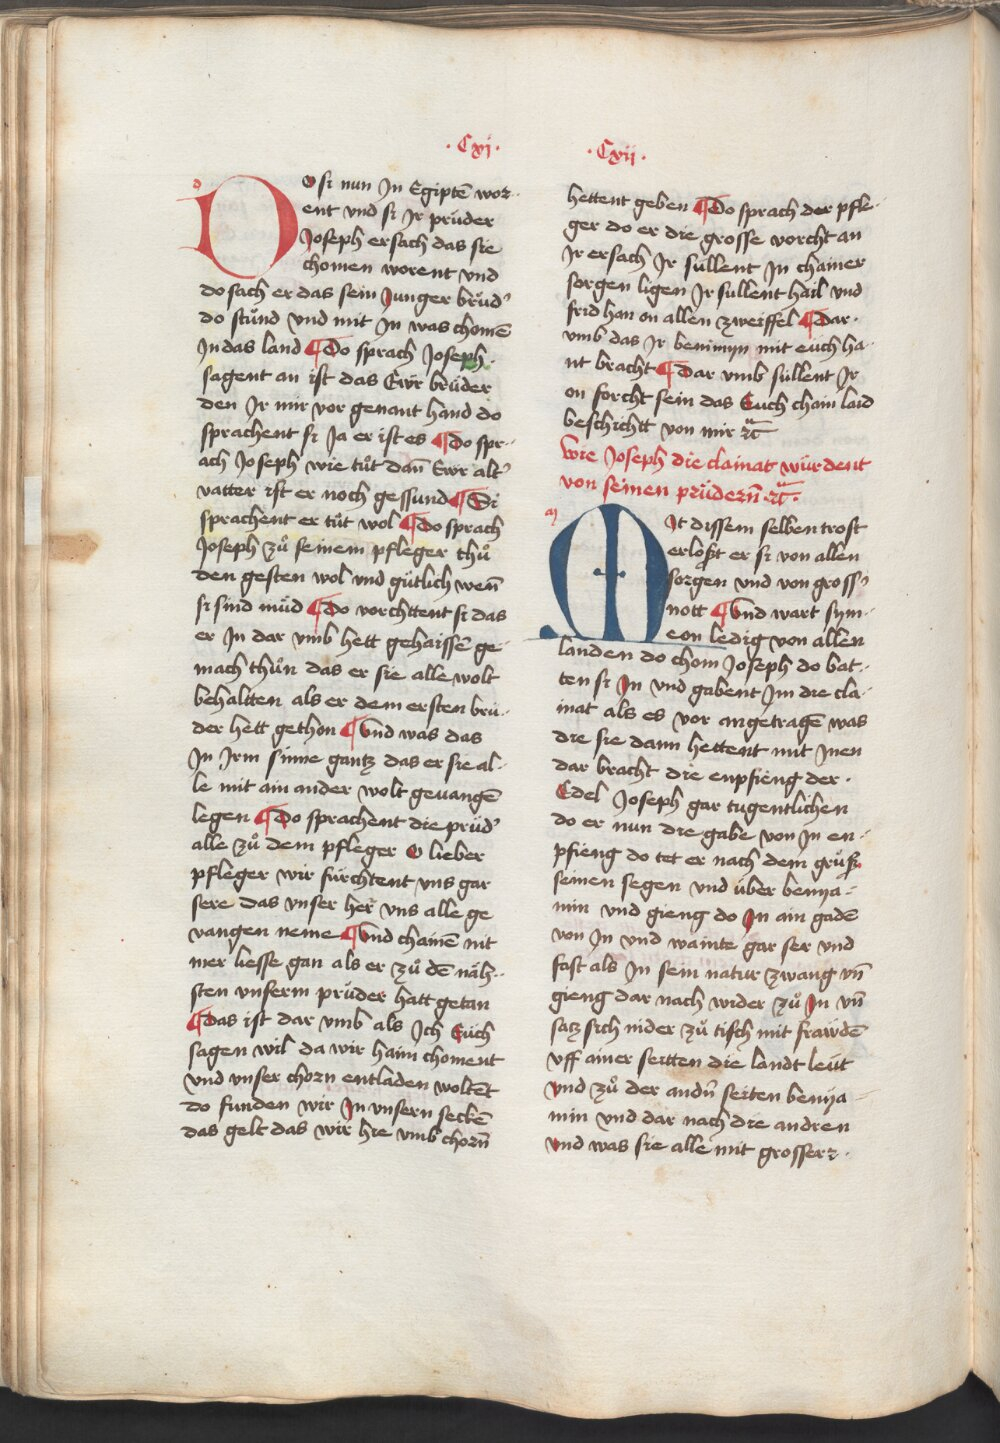 · Cxi ·
Do si nun Jn Egiptē wor-
ent vnd si Jr prüder
Joseph ersach das sie
chomen worent vnd
do sach er das sein Junger brůd'
do stůnd vnd mit Jn was chomē
Jn das land ¶ Do sprach Joseph ·
sagent an ist das Ewr brüder
den Jr mir vor genant hand do
sprachent si Ja er ist es ¶ Do spr-
ach Joseph wie tůt dañ Ewr alt'
vatter ist er noch gessund ¶ Si
sprachent er tůt wol ¶ Do sprach
Joseph zů seinem pfleger thů
den gesten wol vnd gütlich weñ
si sind müd ¶ Do vorchttent si das
er Jn dar vmb hett gehaissē ge
mach thůn das er sie alle wolt
behaltten als er dem ersten brü-
der hett gethon ¶ Vnd was das
Jn Jrm sinne gantz das er sie al-
le mit ain ander wolt geuangē
legen ¶ Do sprachent die prüd'
alle zů dem pfleger O lieber
pfleger wir fürchtent vns gar
sere das vnser her vns alle ge
vangen neme ¶ Vnd chainē nit
mer liesse gan als er zů dē näh-
sten vnserm prüder hatt getan
¶ Das ist dar vmb als Jch Euch
sagen wil da wir haim choment
vnd vnser chorn entladen woltēt
do funden wir Jn vnsern seckē
das gelt das wir hie vmb chorñ
· Cxii ·
hettent geben ¶ Do sprach der pfle-
ger do er die grosse vorcht an
Jr ersach Jr süllent Jn chainer
sorgen ligen Jr sullent hail vnd
frid han on allen zweiffel ¶ Dar-
vmb das Jr benimyn mit euch ha-
nt bracht ¶ Dar vmb süllent Jr
on forcht sein das Euch chain laid
beschichtt von mir ꝛc̄
Wie Joseph die clainat würdent
von seinen prüderñ ꝛc̄ ·
MJt dissem selben trost
erlost er si von allen
sorgen vnd von gross'
nott ¶ Vnd wart sym-
eon ledig von allen
landen do chom Joseph do bat-
ten si Jn vnd gabent Jm die cla-
inat als es vor angetragē was
die sie dann hettent mit Jnen
dar bracht die enpfieng der ·
Edel Joseph gar tugentlichen
do er nun die gabe von Jn en-
pfieng do tet er nach dem grůß
seinen segen vnd über benia-
min vnd gieng do Jn ain gadē
von Jn vnd wainte gar ser vnd
fast als Jn sein natur zwang vñ
gieng dar nach wider zů Jn vñ
satz sich nider zů tisch mit frawdē
vff ainer seitten die landt leüt
vnd zů der andñ seiten benia-
min vnd dar nach die andren
vnd was sie alle mit grosser ·